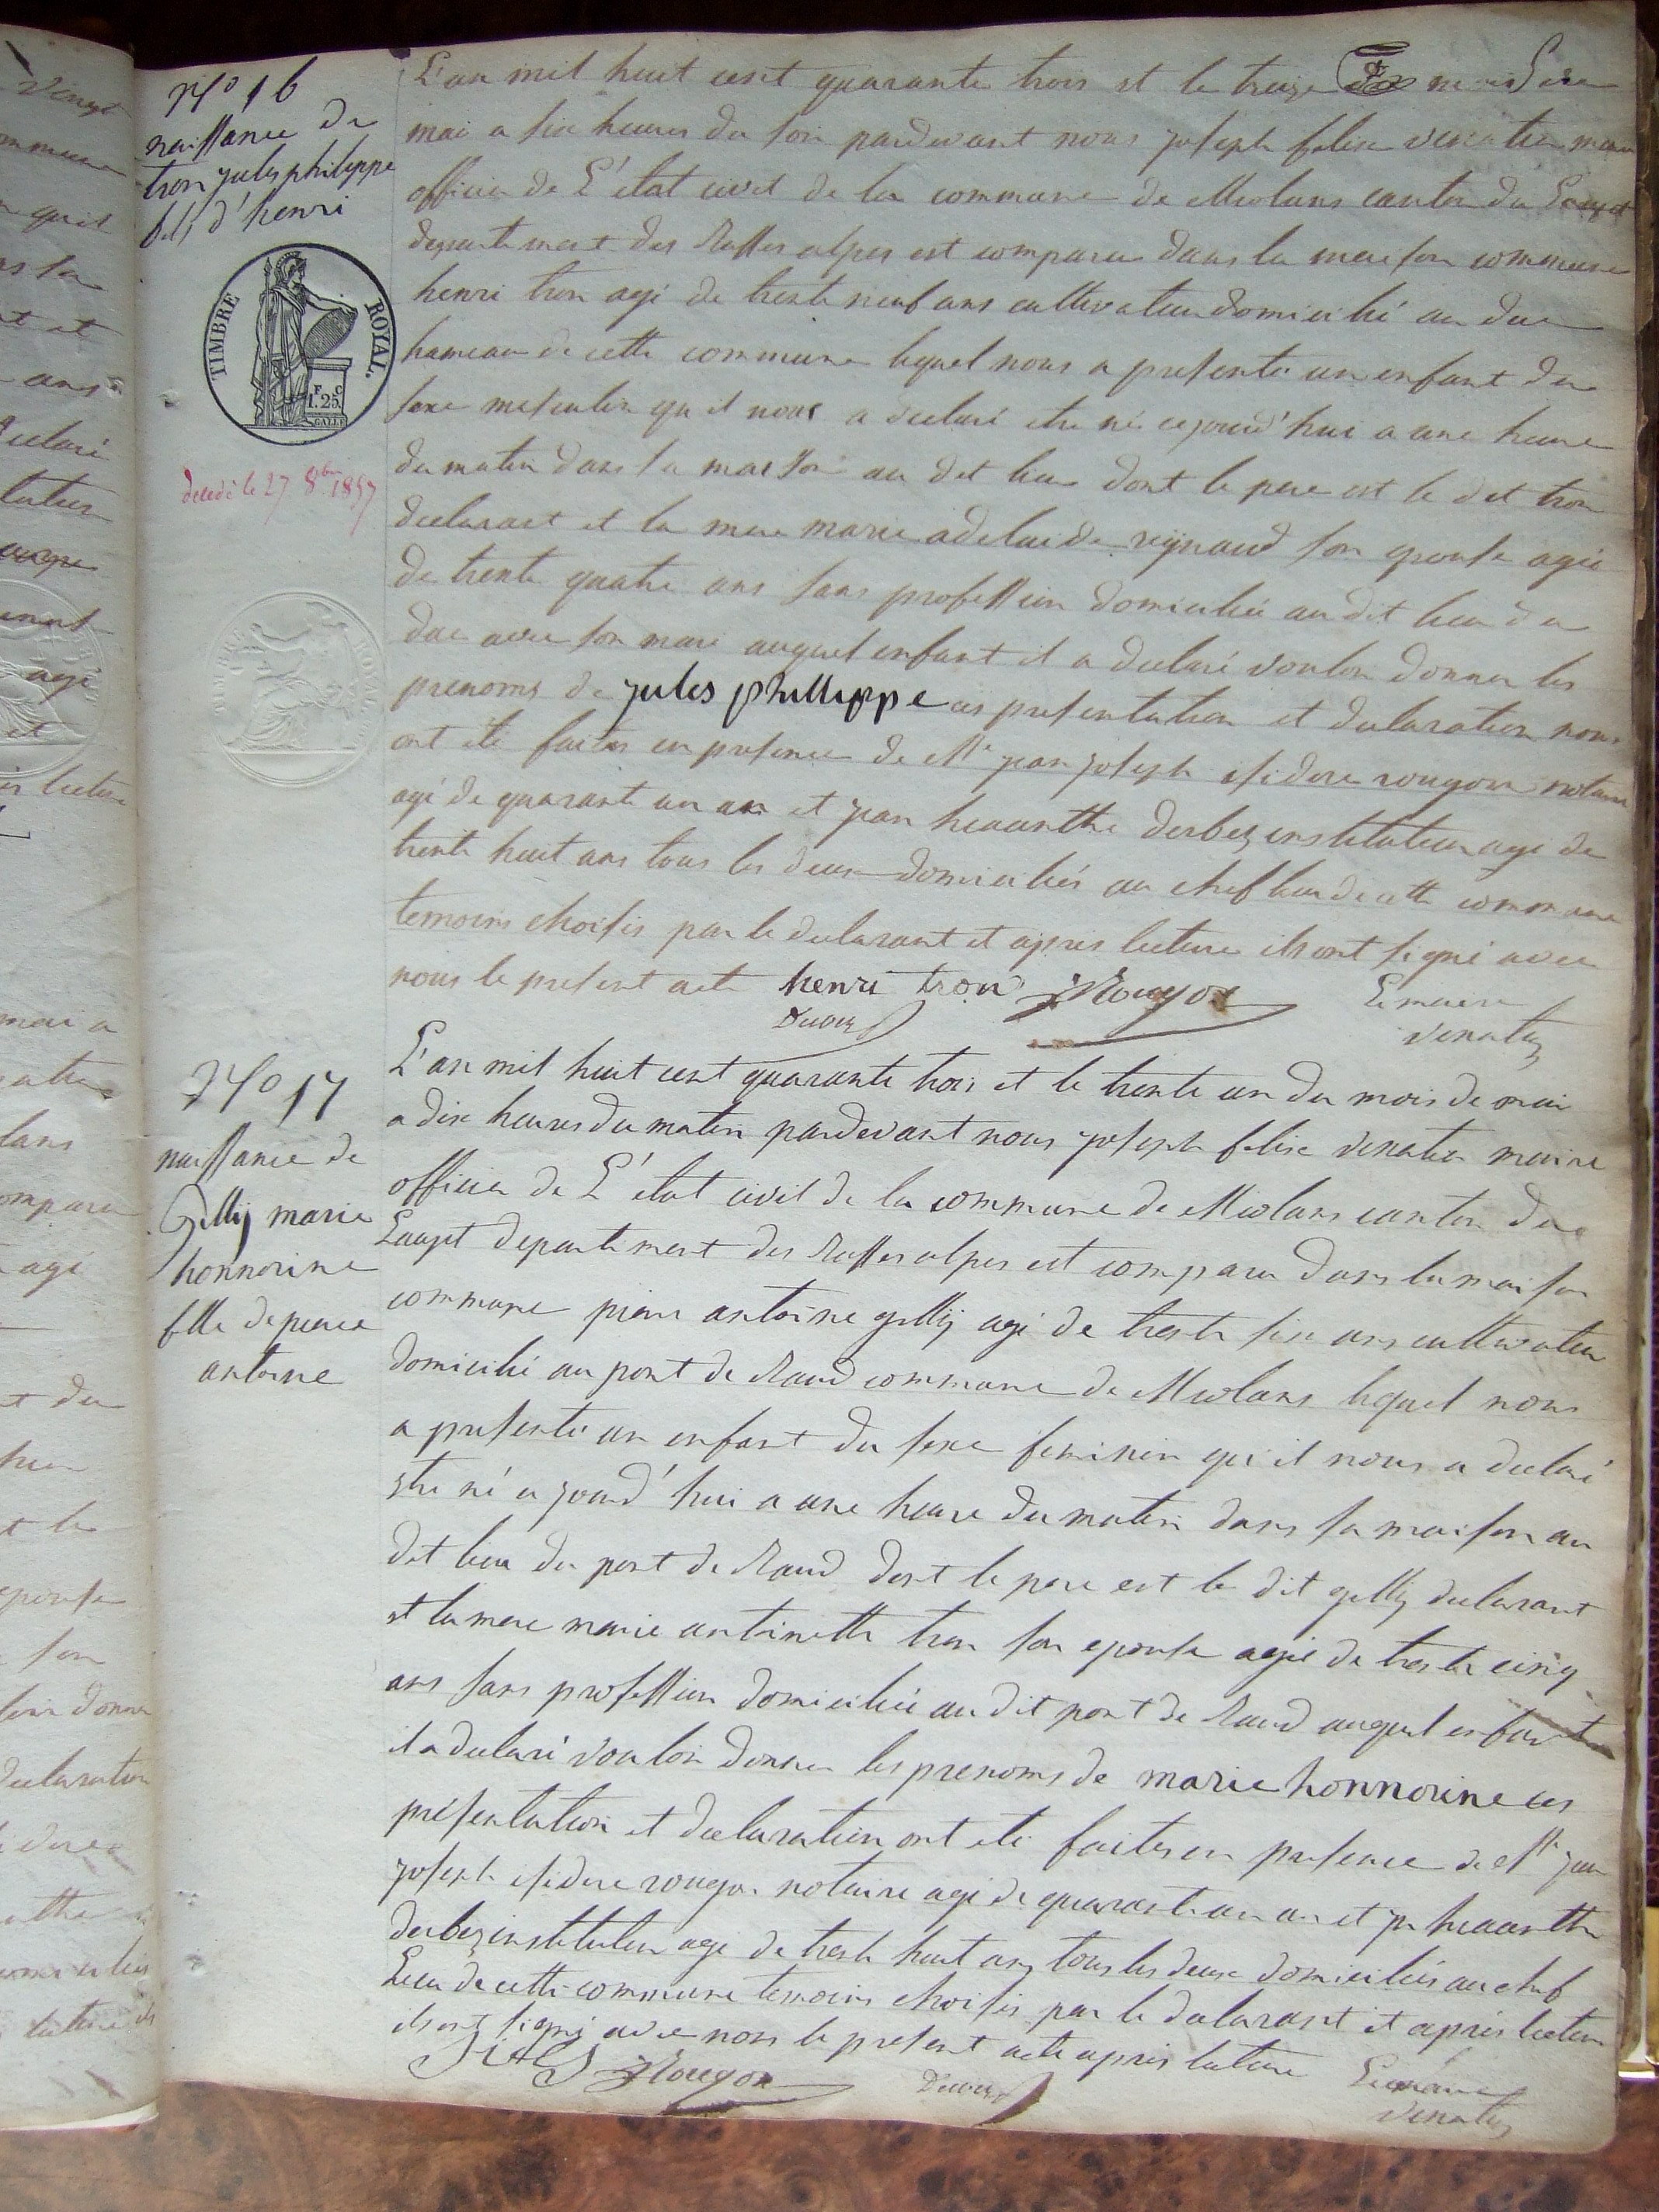 N° 16
naissance de
tron jules philippe
fils d'henri
TIMBRE ROYAL.
F C
1.25.
GALLE
décédé le 27 8bre 1857
L'an mil huit cent quarante trois et le treize mois de
mai a six heures du soir pardevant nous joseph felix venatier maire
officier de L'etat civil de la commune de Meolans canton du Lauzet
departement des Basses alpes est comparu dans la maison commune
henri tron agé de trente neuf ans cultivateur domicilié au duc
hameau de cette commune lequel nous a presenté un enfant du
sexe masculin qu il nous a declaré etre né cejourd'hui a une heure
du matin dans sa maison au dit lieu dont le pere est le dit tron
declarant et la mere marie adelaide reynaud son epouse agée
de trente quatre ans sans profession domiciliée au dit lieu du
duc avec son mari auquel enfant il a declaré vouloir donner les
prenoms de jules phillippe ces presentation et declaration nous
ont été faites en presence de Me jean joseph isidore rougon notaire
agé de quarante un an et jean hiacinthe derbez instituteur agé de
trente huit ans tous les deux domiciliés au chef lieu de cette commune
temoins choisis par le declarant et apres lecture ils ont signé avec
nous le present acte henri tron JRougon Le maire
Derbez venatier
N° 17
naissance de
Gilly marie
honnorine
fille de pierre
antoine
L'an mil huit cent quarante trois et le trente un du mois de mai
a dix heures du matin pardevant nous joseph felix venatier maire
officier de L'etat civil de la commune de Meolans canton du
Lauzet departement des Basses alpes est comparu dans la maison
commune pierre antoine gilly agé de trente six ans cultivateur
domicilié au pont de Raud commune de Meolans lequel nous
a presenté un enfant du sexe feminin qu il nous a declaré
etre né ce jourd'hui a une heure du matin dans sa maison au
dit lieu du pont de Raud dont le pere est le dit gilly declarant
et la mere marie antoinette tron son epouse agée de trente cinq
ans sans profession domiciliée au dit pont de Raud auquel enfant
il a declaré vouloir donner les prenoms de marie honnorine ces
presentation et declaration ont été faites en presence de Me jean
joseph isidore rougon notaire agé de quarante un an et jn hiacinthe
derbez instituteur agé de trente huit ans tous les deux domiciliés au chef
Lieu de cette commune temoins choisis par le declarant et apres lecture
ils ont signé avec nous le present acte apres lecture Le maire
JRougon Derbez venatier